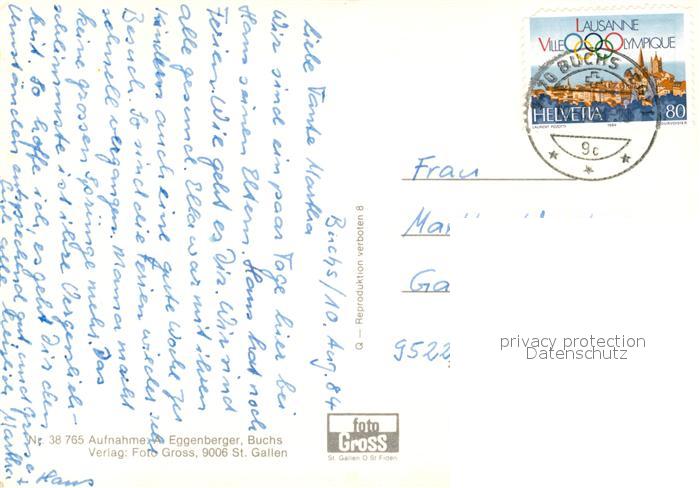 Buchs/10. Aug. 84
Liebe Tante Martha
Wir sind ein paar Tage hier bei
Hans seinen Eltern. Hans hat noch
Ferien. Wie geht es Dir. Wir sind
alle gesund. Ella war mit ihren
Kindern auch eine gute Woche zu
Besuch. So sind die Ferien wieder sehr
schnell vergangen. Mama macht
keine grossen Sprünge mehr. Das
schlimmste ist ihre Vergesslich-
keit. So hoffe ich, es geht Dir den
Umständen entsprechend gut und grüsse
Dich alle herzlich Martha +
Hans
Nr. 38 765 Aufnahme: A. Eggenberger, Buchs
Verlag: Foto Gross, 9006 St. Gallen
Q — Reproduktion verboten 8
foto
Gross
St. Gallen O St Fiden
LAUSANNE
VILLE OLYMPIQUE
HELVETIA 80
LAURENT PIZZOTTI 1984 COURVOISIER
BUCHS
9c
Frau
Ma
Ga
9522
privacy protection
Datenschutz